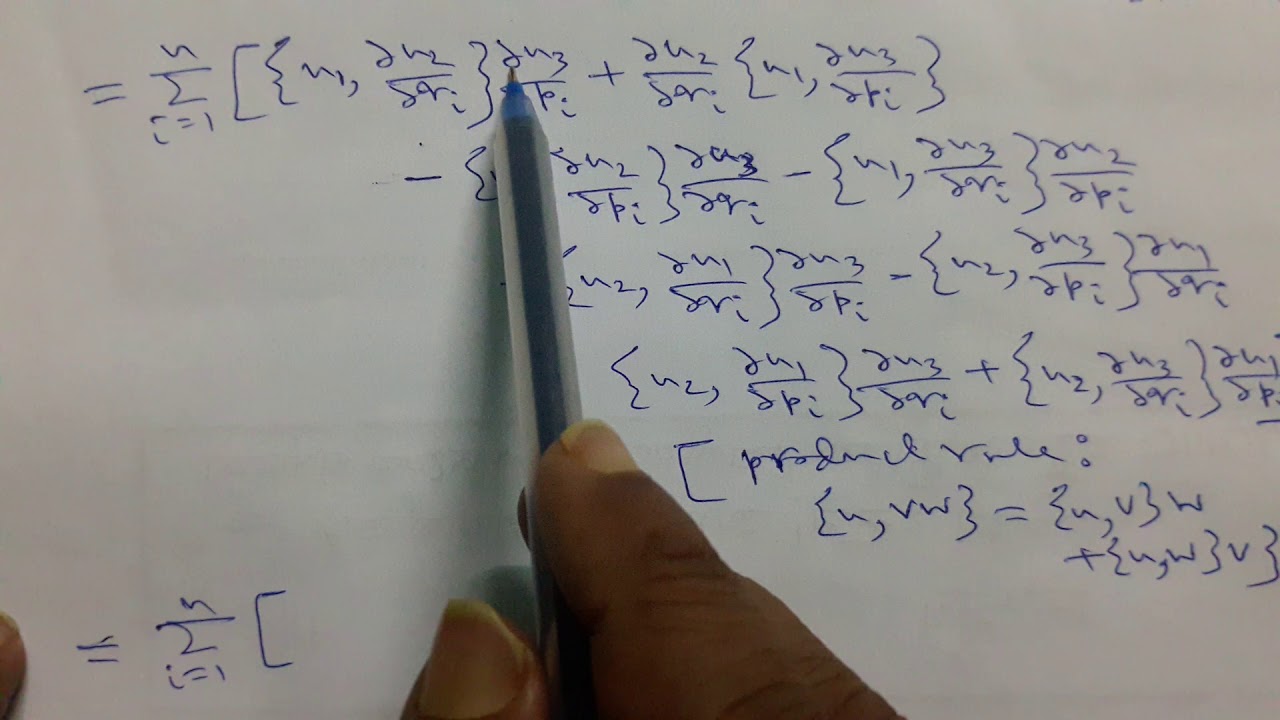 = \sum_{i=1}^{n} [ {u_1, ∂u_2/∂q_i} ∂u_3/∂p_i + ∂u_2/∂q_i {u_1, ∂u_3/∂p_i}
- { ∂u_2/∂p_i} ∂u_3/∂q_i - {u_1, ∂u_3/∂q_i} ∂u_2/∂p_i
{u_2, ∂u_1/∂q_i} ∂u_3/∂p_i - {u_2, ∂u_3/∂p_i} ∂u_1/∂q_i
{u_2, ∂u_1/∂p_i} ∂u_3/∂q_i + {u_2, ∂u_3/∂q_i} ∂u_1/∂p_i
[ product rule:
{u, vw} = {u, v} w
+ {u, w} v}
= \sum_{i=1}^{n} [